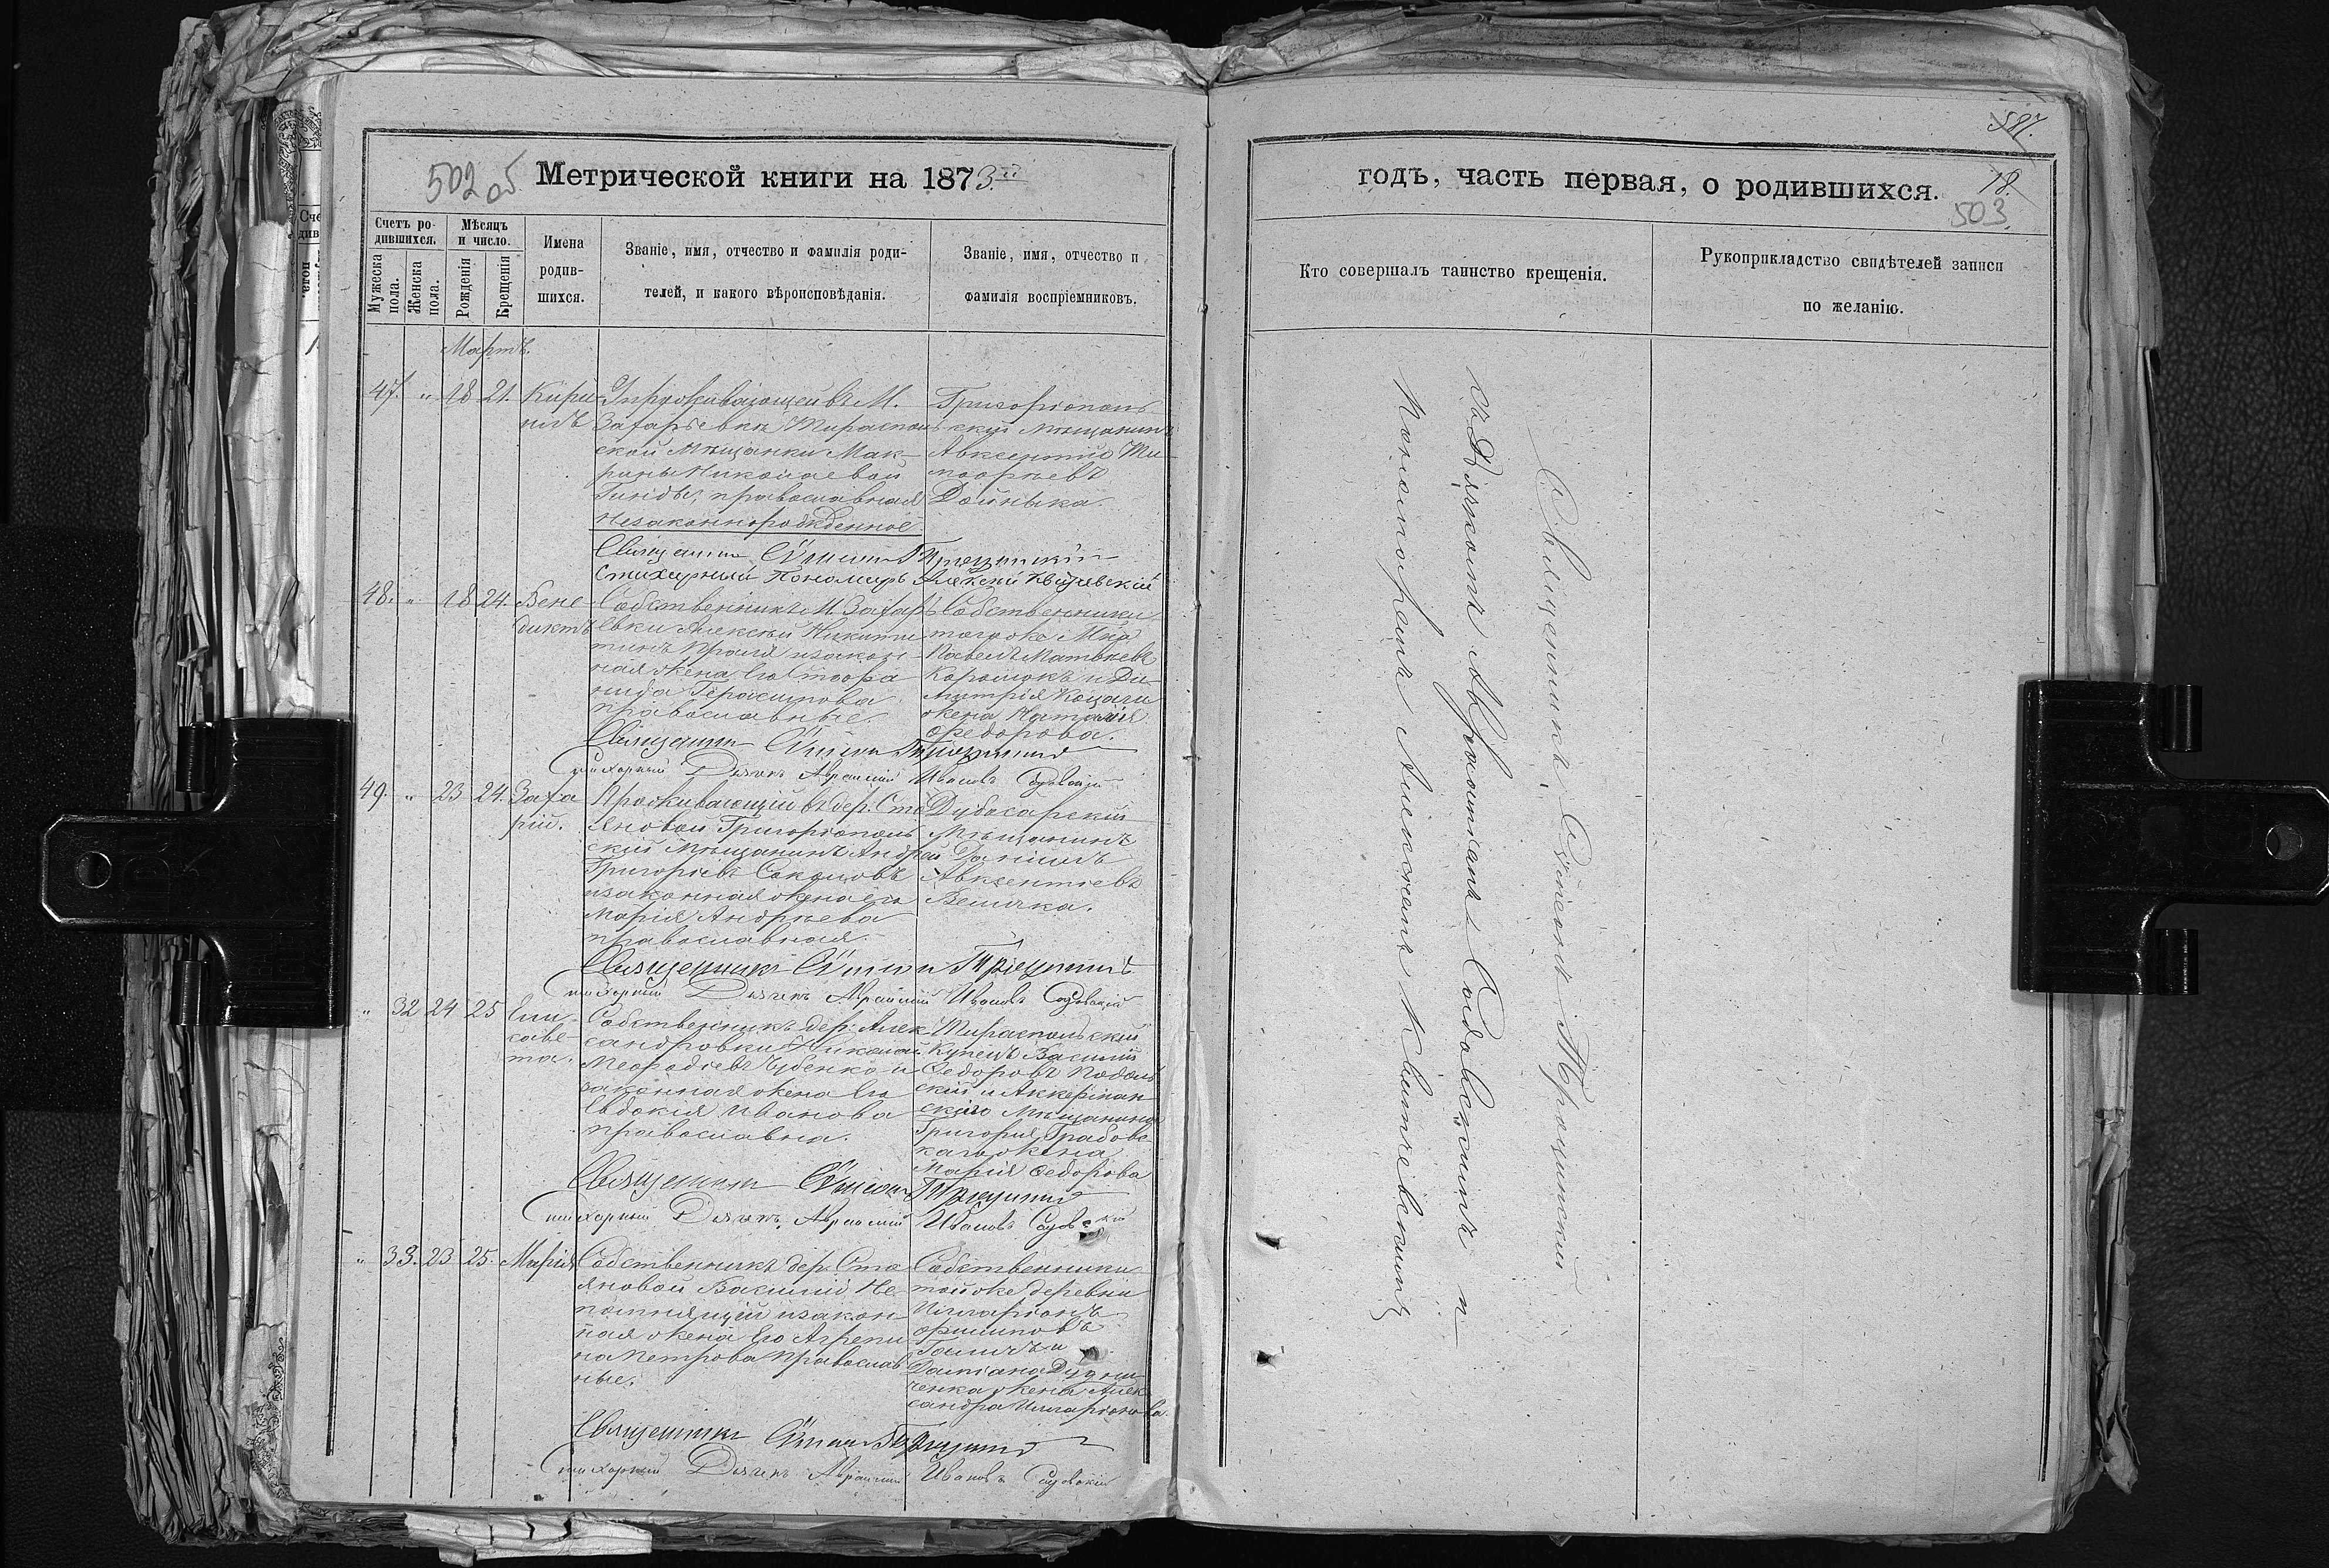 502 об
Метрической книги на 1873й
Счетъ ро-
дившихся.
Мѣсяцъ
и число.
Мужеска
пола.
Женска
пола.
Рожденія
Крещенія
Имена
родив-
шихся.
Званіе, имя, отчество и фамилія роди-
телей, и какого вѣроисповѣданія.
Званіе, имя, отчество и
фамилія воспріемниковъ.
Мартъ.
47. " 18 21. Кири-
илъ
Упроживающей въ М.
Захарьевкѣ Тираспол-
ской мѣщанки Мак-
рины Николаевой
православная
Незаконнорожденное
Григоріополь-
скій мѣщанинъ
Авксентій Ти-
моѳеевъ
Дойнѣка.
Священникъ Сѵмеонъ Троицкій
Стихарный Пономарь Алексій Квитчевскій
48. " 18 24. Бене-
диктъ
Собственникъ М. Захарь-
евки Алексѣй Никити-
инъ изакон-
ная жена Его
Герасимова
православные.
Собственники
тогоже М.
Павелъ Матвѣевъ
и Ди-
митрія
жена Наталія
Ѳедорова.
Священникъ Сѵмеонъ Троицкій
Стихарный Дьячекъ Авраамій Ивановъ Содовскій
49. " 23 24. Заха
рій.
Проживающій въ дер. Сто
яновой Григоріополь
скій Мѣщанинъ Андрей
Григоріевъ Соколовъ
изаконная жена его
Марія Андрѣева
православная.
Дубосарскій
Мѣщанинъ
Даніилъ
Авксентіевъ
Величка.
Священникъ Сѵмеонъ Троицкій
Стихарный Дьячекъ Авраамій Ивановъ Содовскій
" 32 24 25 Ели-
саве-
та.
Собственникъ дер. Алек
сандровки Николай
Меѳодіевъ и
законная жена Его
Евдокія Иванова
православна.
Тираспольскій
Купецъ Василій
Ѳедоровъ Подоль
скій и Аккерман
скаго Мѣщанина
Григорія Грабовс
каго жена
Марія Ѳедорова
Священникъ Сѵмеонъ Троицкій
Стихарный Дьячекъ Авраамій Ивановъ Содовскій
" 33. 23 25. Марія
Собственникъ дер. Сто
яновой Василій Не
помнящій изакон
ная жена Его Агрепи
на Петрова православ
ные.
Собственники
тойже деревни
Илларіонъ
Филиповъ
и
Даміана Дудни-
ченка жена Алек
сандра Илларіонова.
Священникъ Сѵмеонъ Троицкій
Стихарный Дьячекъ Авраамій Ивановъ Содовскій
587.
годъ, часть первая, о родившихся.
18.
503
Кто совершалъ таинство крещенія.
Рукоприкладство свидѣтелей записи
по желанію.
Священникъ Сѵмеонъ Троицкій
съ Дьячкомъ Авраамомъ Содовскимъ и
Пономаремъ Алексѣемъ Квитчевскимъ